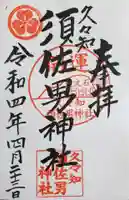 奉拝
久々知
須佐男神社
令和四年四月二十三日
久々知
須佐男
神社